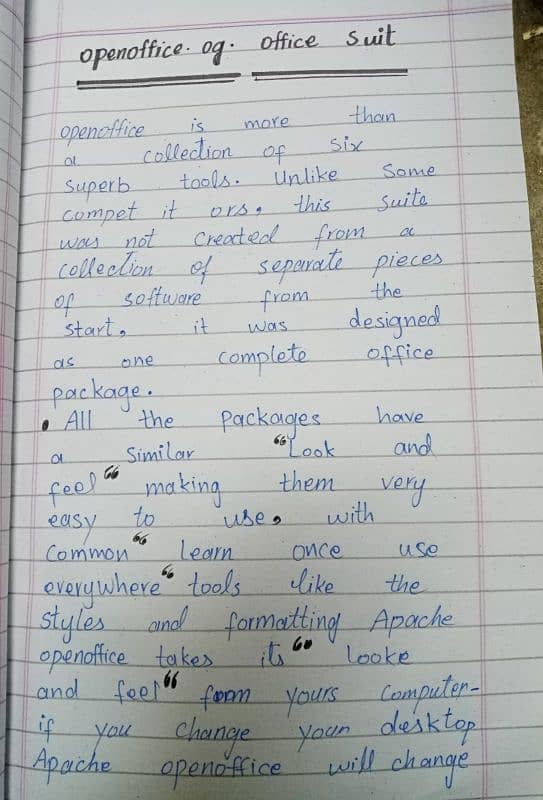 openoffice. og. office suit
openoffice is more than
a collection of six
superb tools. Unlike Some
compet it ors, this suite
was not created from a
collection of separate pieces
of software from the
start, it was designed
as one complete office
package.
• All the packages have
a similar "Look and
feel" making them very
easy to use, with
common " learn once use
everywhere " tools like the
styles and formatting Apache
openoffice takes its " looke
and feel " form yours computer-
if you change your desktop
Apache openoffice will change